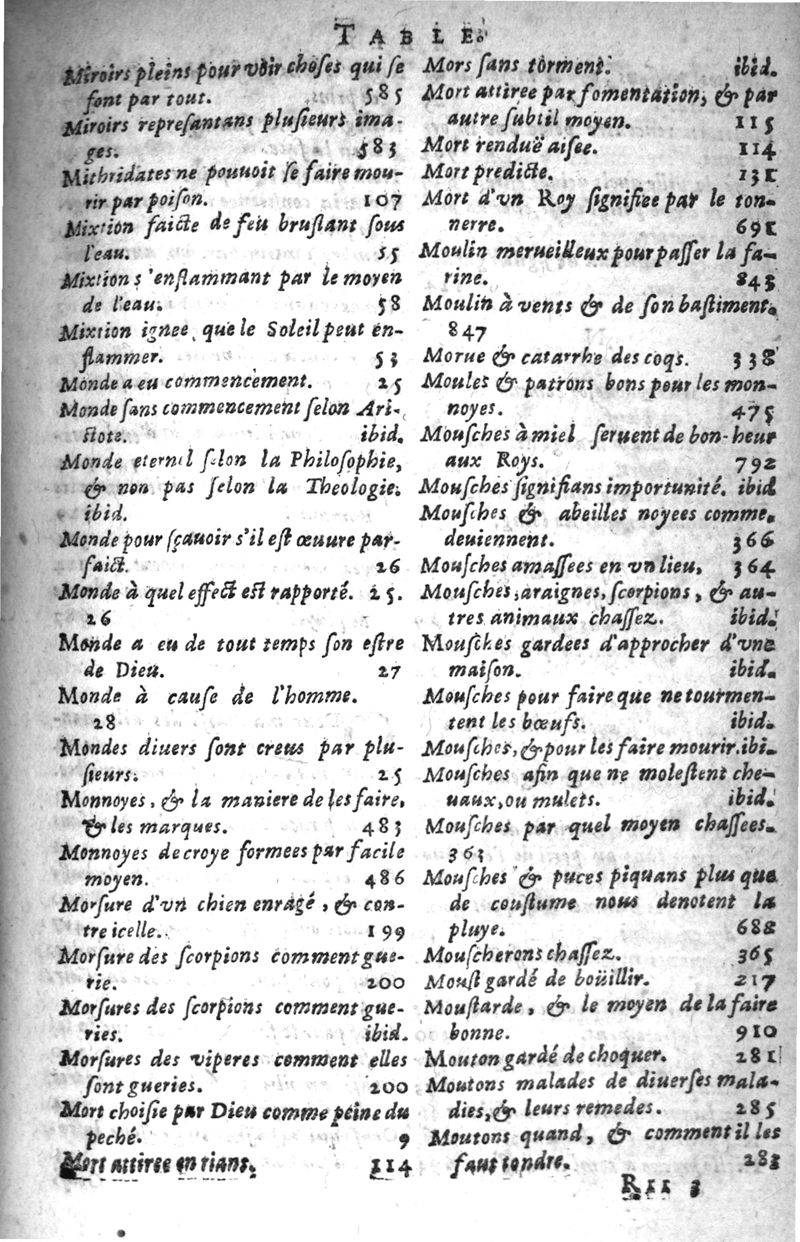 TABLE.
Miroirs pleins pour voir choses qui se
font par tout. 585
Miroirs represantans plusieurs ima-
ges. 583
Mithridates ne pouuoit se faire mou-
rir par poison. 107
Mixtion faicte de feu bruslant sous
l'eau. 55
Mixtion s'enflammant par le moyen
de l'eau. 58
Mixtion ignee, que le Soleil peut en-
flammer. 53
Monde a eu commencement. 25
Monde sans commencement selon Ari-
stote. ibid.
Monde eternel selon la Philosophie,
& non pas selon la Theologie.
ibid.
Monde pour sçauoir s'il est œuure par-
faict. 26
Monde à quel effect est rapporté. 25.
26
Monde a eu de tout temps son estre
de Dieu. 27
Monde à cause de l'homme.
28
Mondes diuers sont creus par plu-
sieurs. 25
Monnoyes, & la maniere de les faire,
& les marques. 483
Monnoyes de croye formees par facile
moyen. 486
Morsure d'vn chien enragé, & con-
tre icelle. 199
Morsure des scorpions comment gue-
rie. 200
Morsures des scorpions comment gue-
ries. ibid.
Morsures des viperes comment elles
sont gueries. 200
Mort choisie par Dieu comme peine du
peché. 9
Mort attiree en rians. 114
Mors sans torment. ibid.
Mort attiree par fomentation, & par
autre subtil moyen. 115
Mort renduë aisee. 114
Mort predicte. 131
Mort d'vn Roy signifiee par le ton-
nerre. 691
Moulin merueilleux pour passer la fa-
rine. 843
Moulin à vents & de son bastiment.
847
Morue & catarrhe des coqs. 338
Moules & patrons bons pour les mon-
noyes. 475
Mousches à miel seruent de bon-heur
aux Roys. 792
Mousches signifians importunité. ibid
Mousches & abeilles noyees comme.
deuiennent. 366
Mousches amassees en vn lieu, 364
Mousches, araignes, scorpions, & au-
tres animaux chassez. ibid.
Mousches gardees d'approcher d'vne
maison. ibid.
Mousches pour faire que ne tourmen-
tent les bœufs. ibid.
Mousches, & pour les faire mourir. ibi.
Mousches afin que ne molestent che-
uaux, ou mulets. ibid.
Mousches par quel moyen chassees.
363
Mousches & puces piquans plus que
de coustume nous denotent la
pluye. 688
Moucherons chassez. 365
Moust gardé de boüillir. 217
Moustarde, & le moyen de la faire
bonne. 910
Mouton gardé de choquer. 281
Moutons malades de diuerses mala-
dies, & leurs remedes. 285
Moutons quand, & comment il les
faut tondre. 283
Rii 3